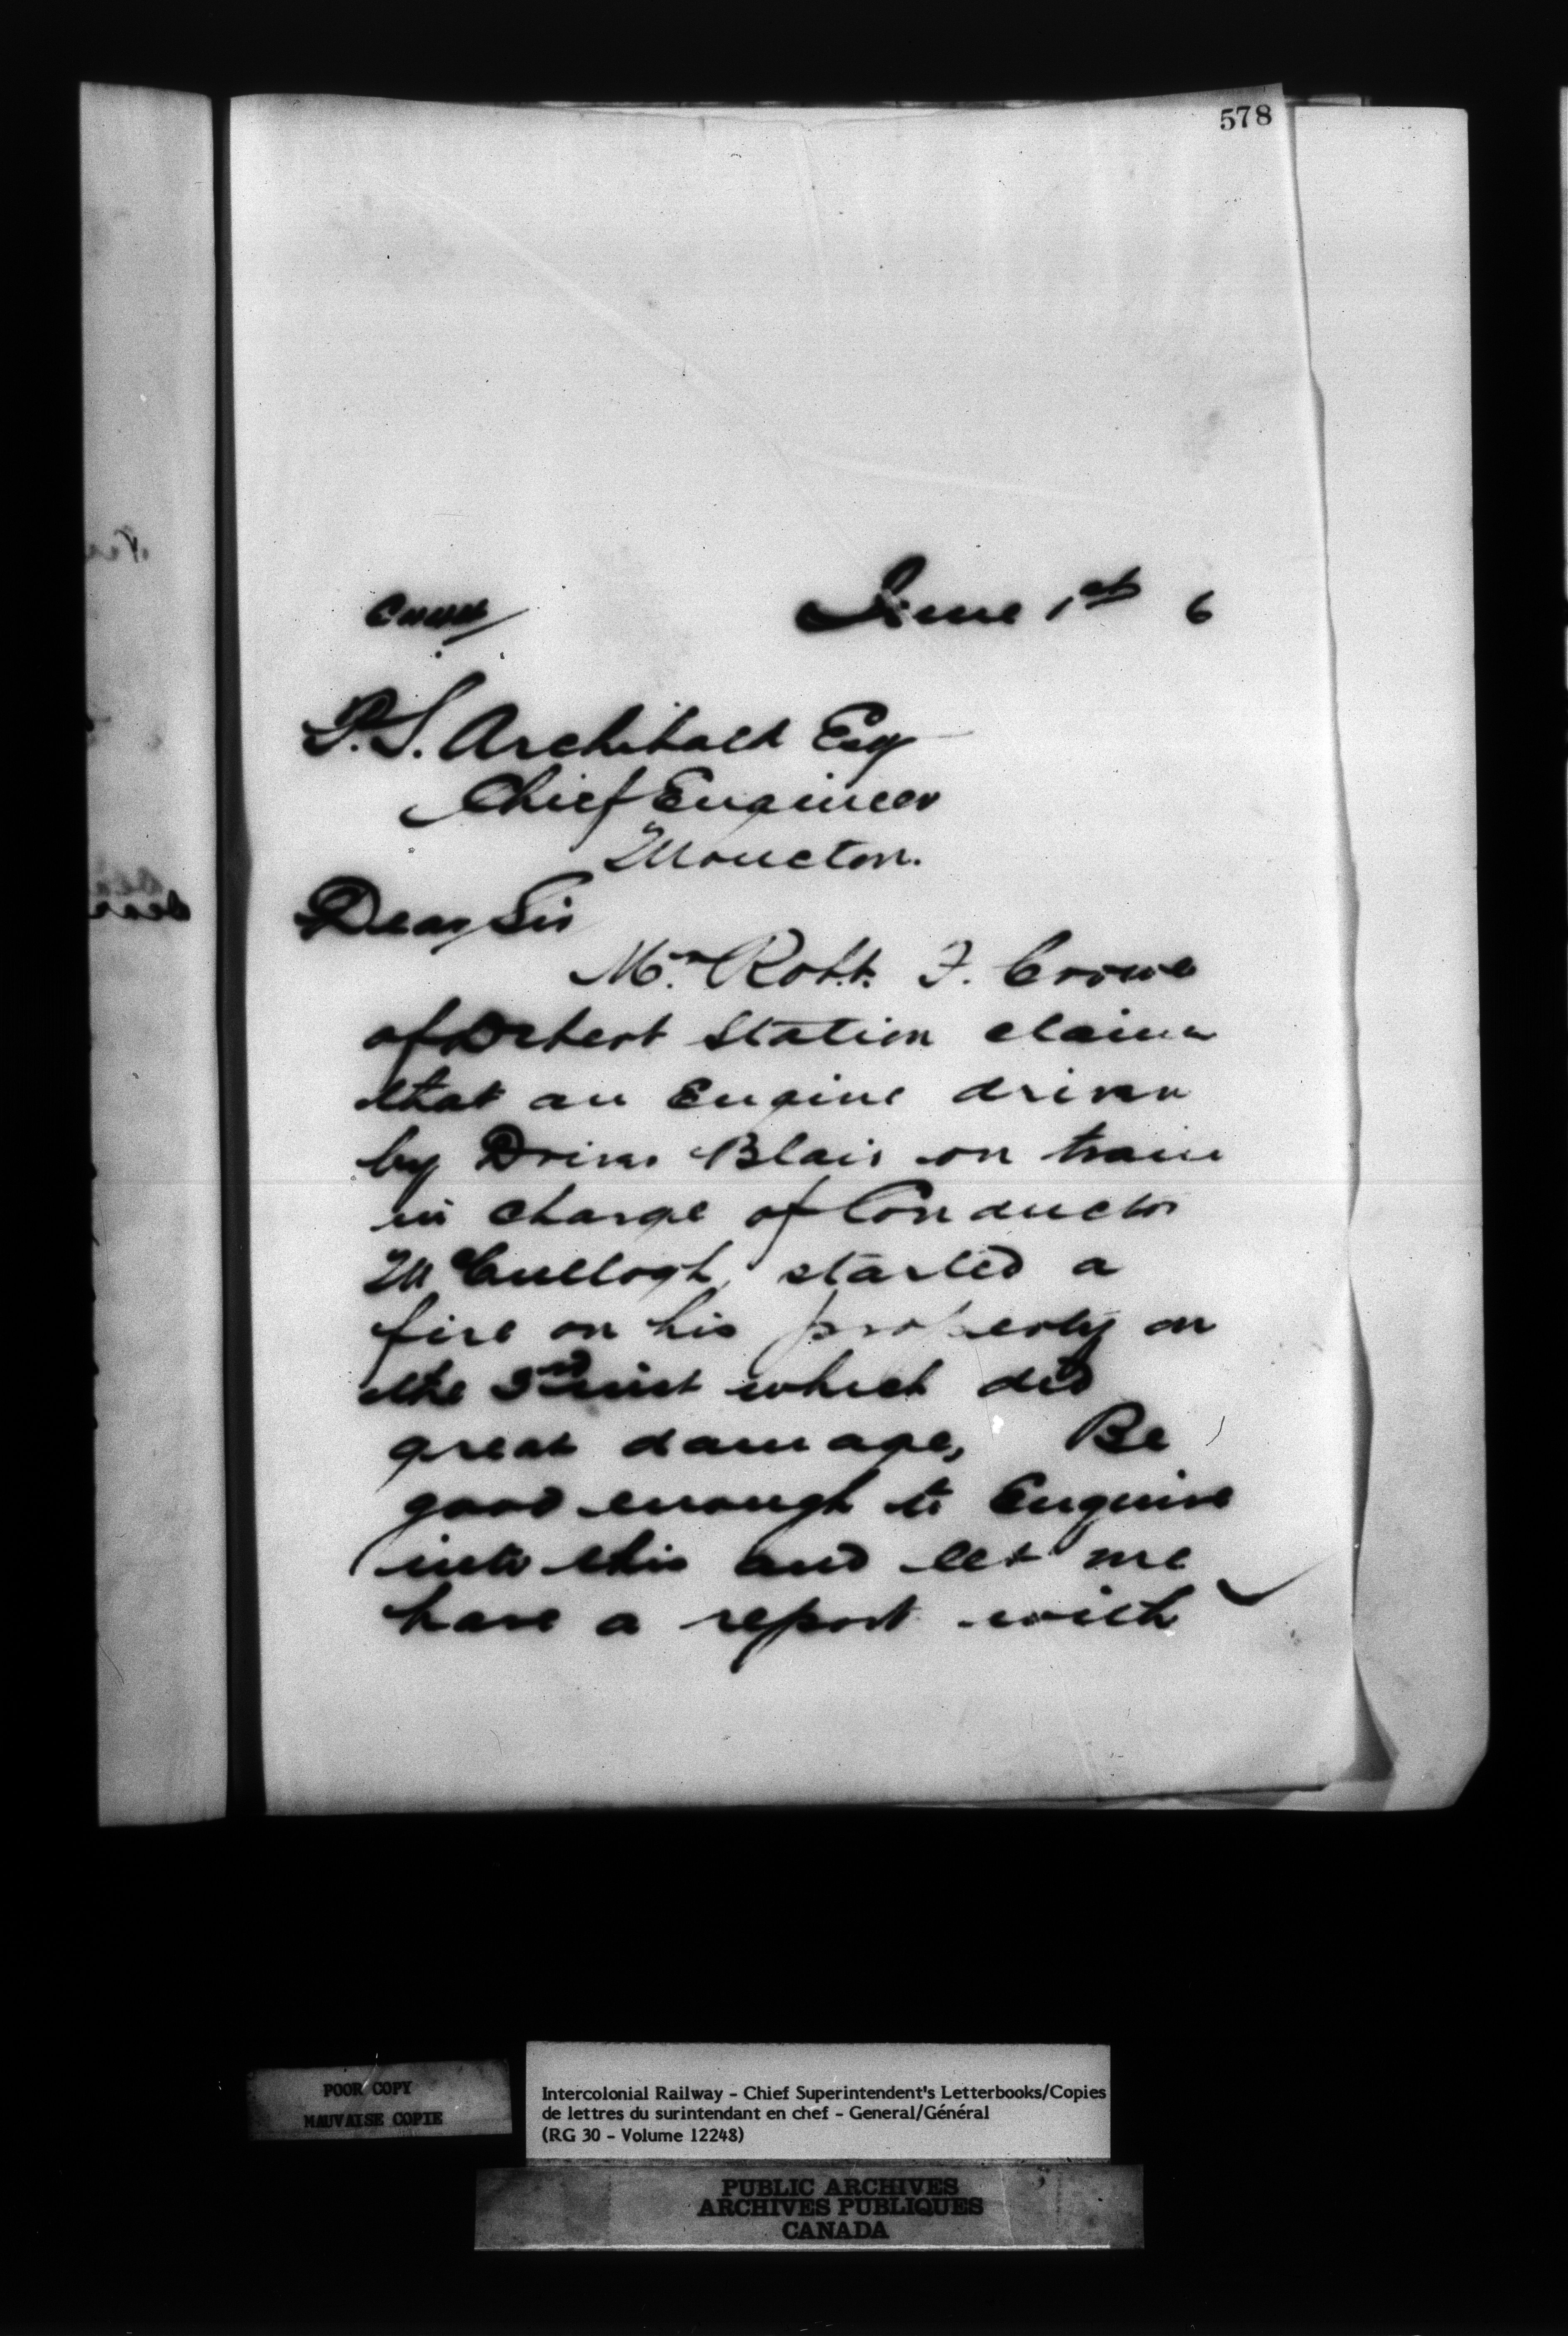 578
June 1st 6
P.S. Archibald Esq
Chief Engineer
Moncton.
Dear Sir
Mr. Robt. F. Crowe
of Debert Station claims
that an Engine driven
by Driver Blair on train
in charge of Conductor
McCullogh, started a
fire on his property on
the inst which did
great damage, Be
good enough to Enquire
into this and let me
have a report with
POOR COPY
MAUVAISE COPIE
Intercolonial Railway - Chief Superintendent's Letterbooks/Copies
de lettres du surintendant en chef - General/Général
(RG 30 - Volume 12248)
PUBLIC ARCHIVES
ARCHIVES PUBLIQUES
CANADA